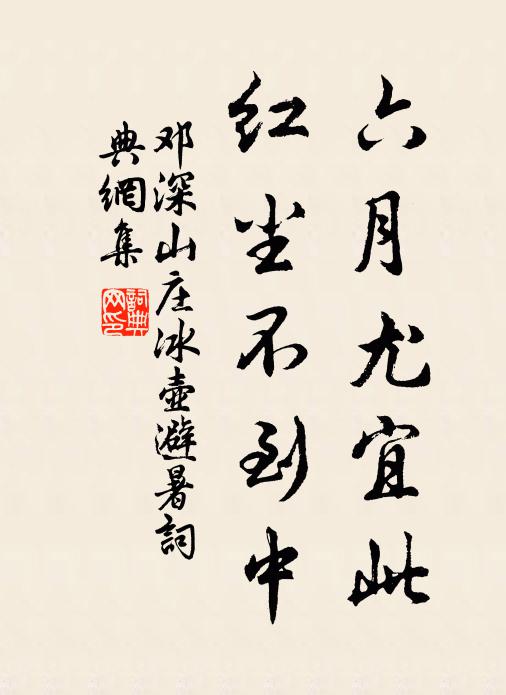 六月尤宜此
红尘不到中
邓深山庄冰壶避暑词
典網集
詞典網印